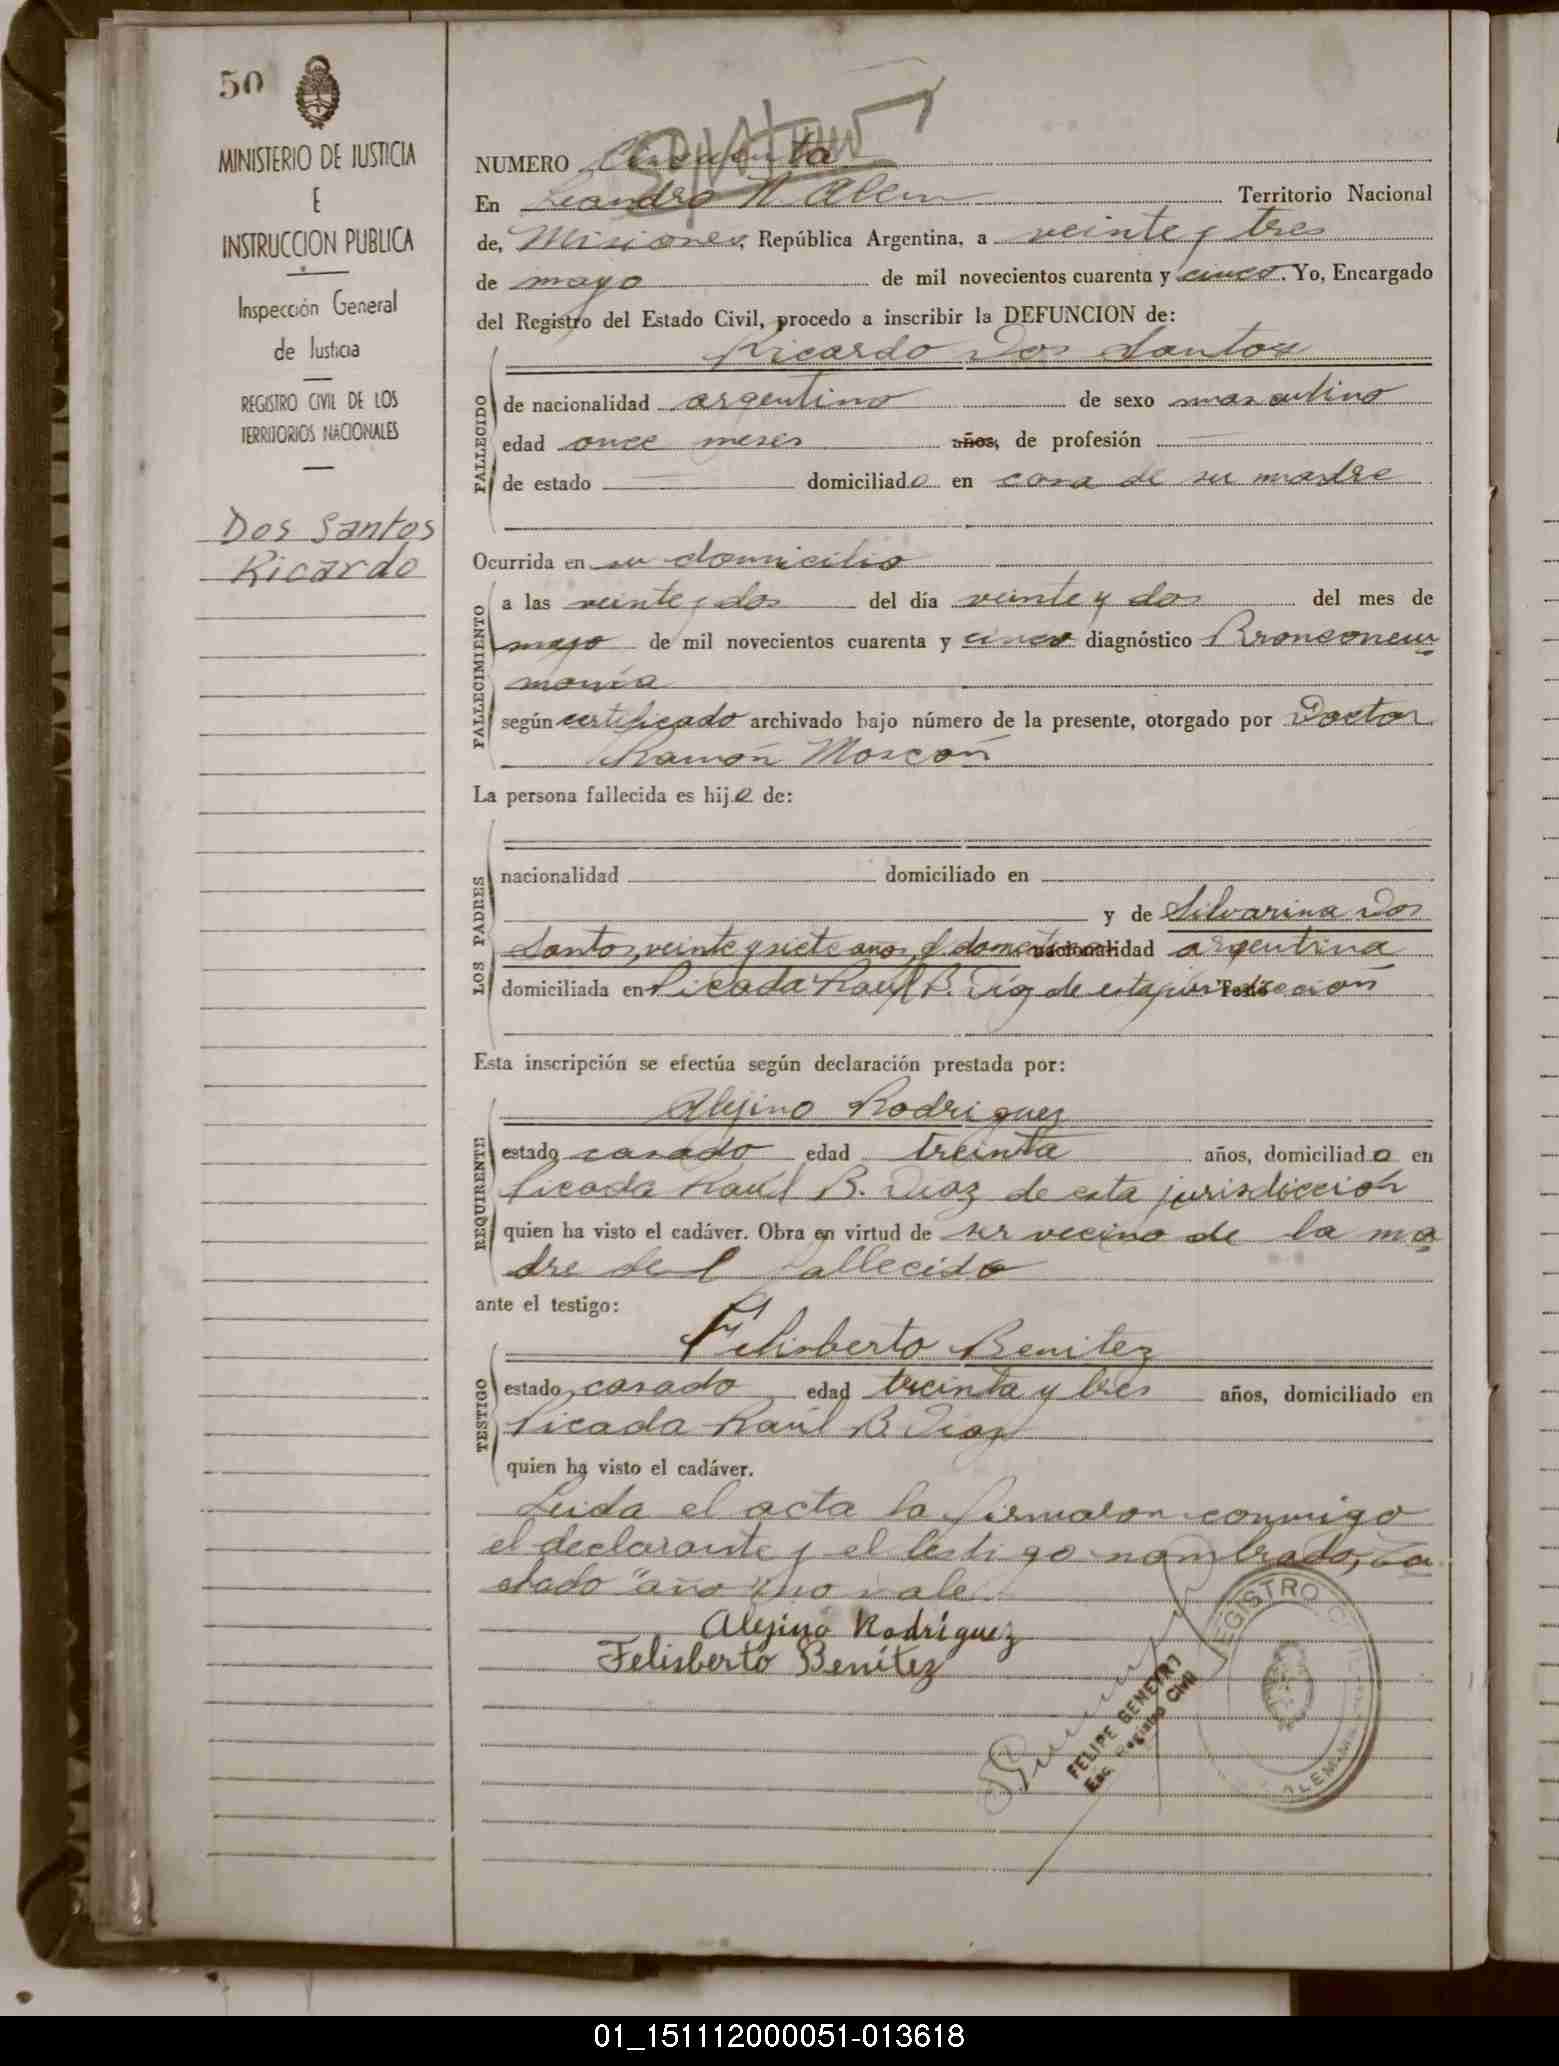 50
MINISTERIO DE JUSTICIA
E
INSTRUCCION PUBLICA
Inspección General
de Justicia
REGISTRO CIVIL DE LOS
TERRITORIOS NACIONALES
Dos Santos
Ricardo
NUMERO Cincuenta
En Leandro N. Alem Territorio Nacional
de, Misiones, República Argentina, a veinte y tres
de mayo de mil novecientos cuarenta y cinco. Yo, Encargado
del Registro del Estado Civil, procedo a inscribir la DEFUNCION de:
Ricardo Dos Santos
FALLECIDO
de nacionalidad argentino de sexo masculino
edad once meses años, de profesión
de estado domiciliado en casa de su madre
Ocurrida en su domicilio
FALLECIMIENTO
a las veinte y dos del día veinte y dos del mes de
mayo de mil novecientos cuarenta y cinco diagnóstico Bronconeu
monía
según certificado archivado bajo número de la presente, otorgado por Doctor
Ramón Moscón
La persona fallecida es hijo de:
LOS PADRES
nacionalidad domiciliado en
y de Silvarina Dos
Santos, veinte y siete años, nacionalidad argentina
domiciliada en Picada Raúl B. Díaz de esta jurisdicción
Esta inscripción se efectúa según declaración prestada por:
Alejino Rodriguez
REQUIRENTE
estado casado edad treinta años, domiciliado en
Picada Raúl B. Diaz de esta jurisdicción
quien ha visto el cadáver. Obra en virtud de ser vecino de la ma
dre del fallecido
ante el testigo:
Felisberto Benitez
TESTIGO
estado casado edad treinta y tres años, domiciliado en
Picada Raúl B Diaz
quien ha visto el cadáver.
Leida el acta la firmaron conmigo
el declarante y el testigo nombrado, Ta
chado "año" no vale.
Alejino Rodríguez
Felisberto Benítez
FELIPE GENEYRO
Enc. Registro Civil
REGISTRO CIVIL
ALEM
01_151112000051-013618